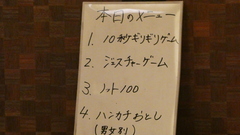 本日のメニュー
1. 10秒ギリギリゲーム
2. ジェスチャーゲーム
3. ノット100
4. ハンカチおとし
(男女別)